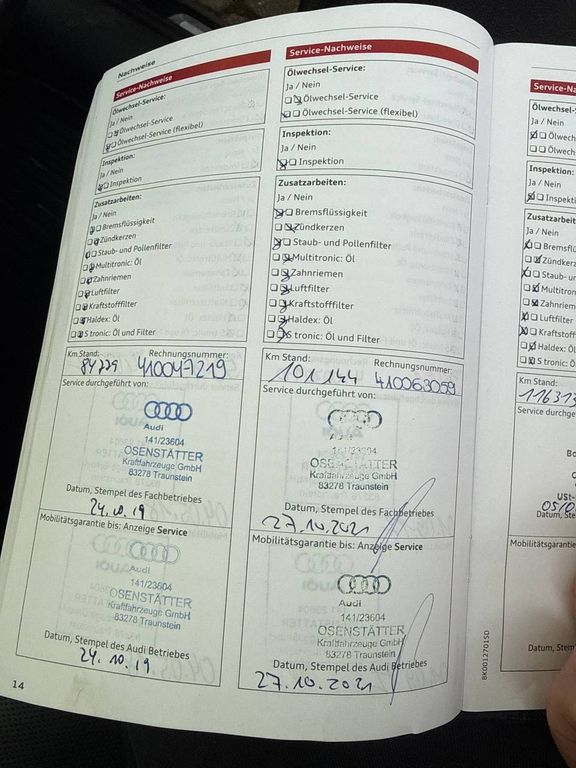 Nachweise
Service-Nachweise
Ölwechsel-Service:
Ja / Nein
Ölwechsel-Service
Ölwechsel-Service (flexibel)
Inspektion:
Ja / Nein
Inspektion
Zusatzarbeiten:
Ja / Nein
Bremsflüssigkeit
Zündkerzen
Staub- und Pollenfilter
Multitronic: Öl
Zahnriemen
Luftfilter
Kraftstofffilter
Haldex: Öl
S tronic: Öl und Filter
Km Stand: Rechnungsnummer:
84229 410047219
Service durchgeführt von:
Audi
141/23604
OSENSTÄTTER
Kraftfahrzeuge GmbH
83278 Traunstein
Datum, Stempel des Fachbetriebes
24.10.19
Mobilitätsgarantie bis: Anzeige Service
Audi
141/23604
OSENSTÄTTER
Kraftfahrzeuge GmbH
83278 Traunstein
Datum, Stempel des Audi Betriebes
24.10.19
14
Service-Nachweise
Ölwechsel-Service:
Ja / Nein
Ölwechsel-Service
Ölwechsel-Service (flexibel)
Inspektion:
Ja / Nein
Inspektion
Zusatzarbeiten:
Ja / Nein
Bremsflüssigkeit
Zündkerzen
Staub- und Pollenfilter
Multitronic: Öl
Zahnriemen
Luftfilter
Kraftstofffilter
Haldex: Öl
S tronic: Öl und Filter
Km Stand: Rechnungsnummer:
101144 410063059
Service durchgeführt von:
Audi
141/23604
OSENSTÄTTER
Kraftfahrzeuge GmbH
83278 Traunstein
Datum, Stempel des Fachbetriebes
27.10.2021
Mobilitätsgarantie bis: Anzeige Service
Audi
141/23604
OSENSTÄTTER
Kraftfahrzeuge GmbH
83278 Traunstein
Datum, Stempel des Audi Betriebes
27.10.2021
8K0012701SD
Service-Na
Ölwechsel-
Ja / Nein
Ölwechs
Ölwech
Inspektion:
Ja / Nein
Inspekt
Zusatzarbeit
Ja / Nein
Bremsflü
Zündkerz
Staub- u
Multitron
Zahnriem
Luftfilter
Kraftstoff
Haldex: Öl
S tronic: Öl
Km Stand:
Service durchge
Bo
USt-
05/0
Datum, Ste
Mobilitätsgarantie
Datum, Stem